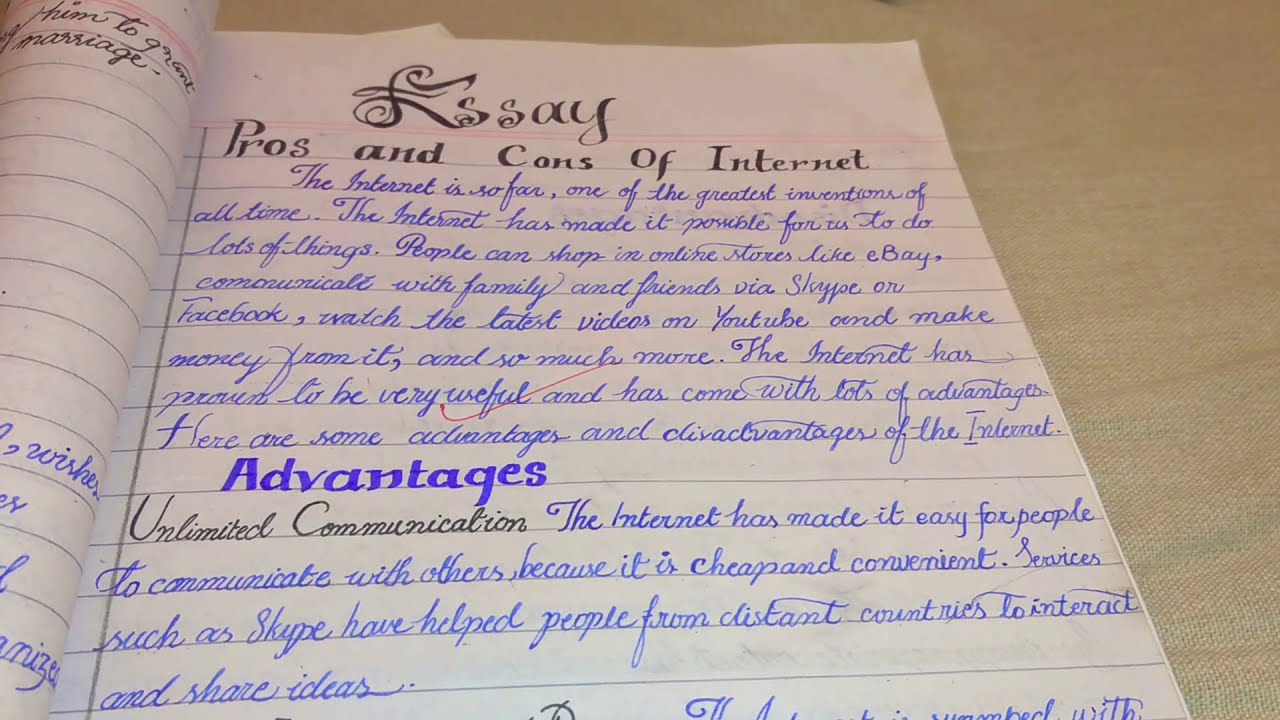 him to grant
marriage.
Essay
Pros and Cons Of Internet
The Internet is so far, one of the greatest inventions of
all time. The Internet has made it possible for us to do
lots of things. People can shop in online stores like eBay,
communicate with family and friends via Skype or
Facebook, watch the latest videos on Youtube and make
money from it, and so much more. The Internet has
proven to be very useful and has come with lots of advantages.
Here are some advantages and disadvantages of the Internet.
, wishes
Advantages
Unlimited Communication The Internet has made it easy for people
to communicate with others, because it is cheap and convenient. Services
such as Skype have helped people from distant countries to interact
and share ideas.
The is with